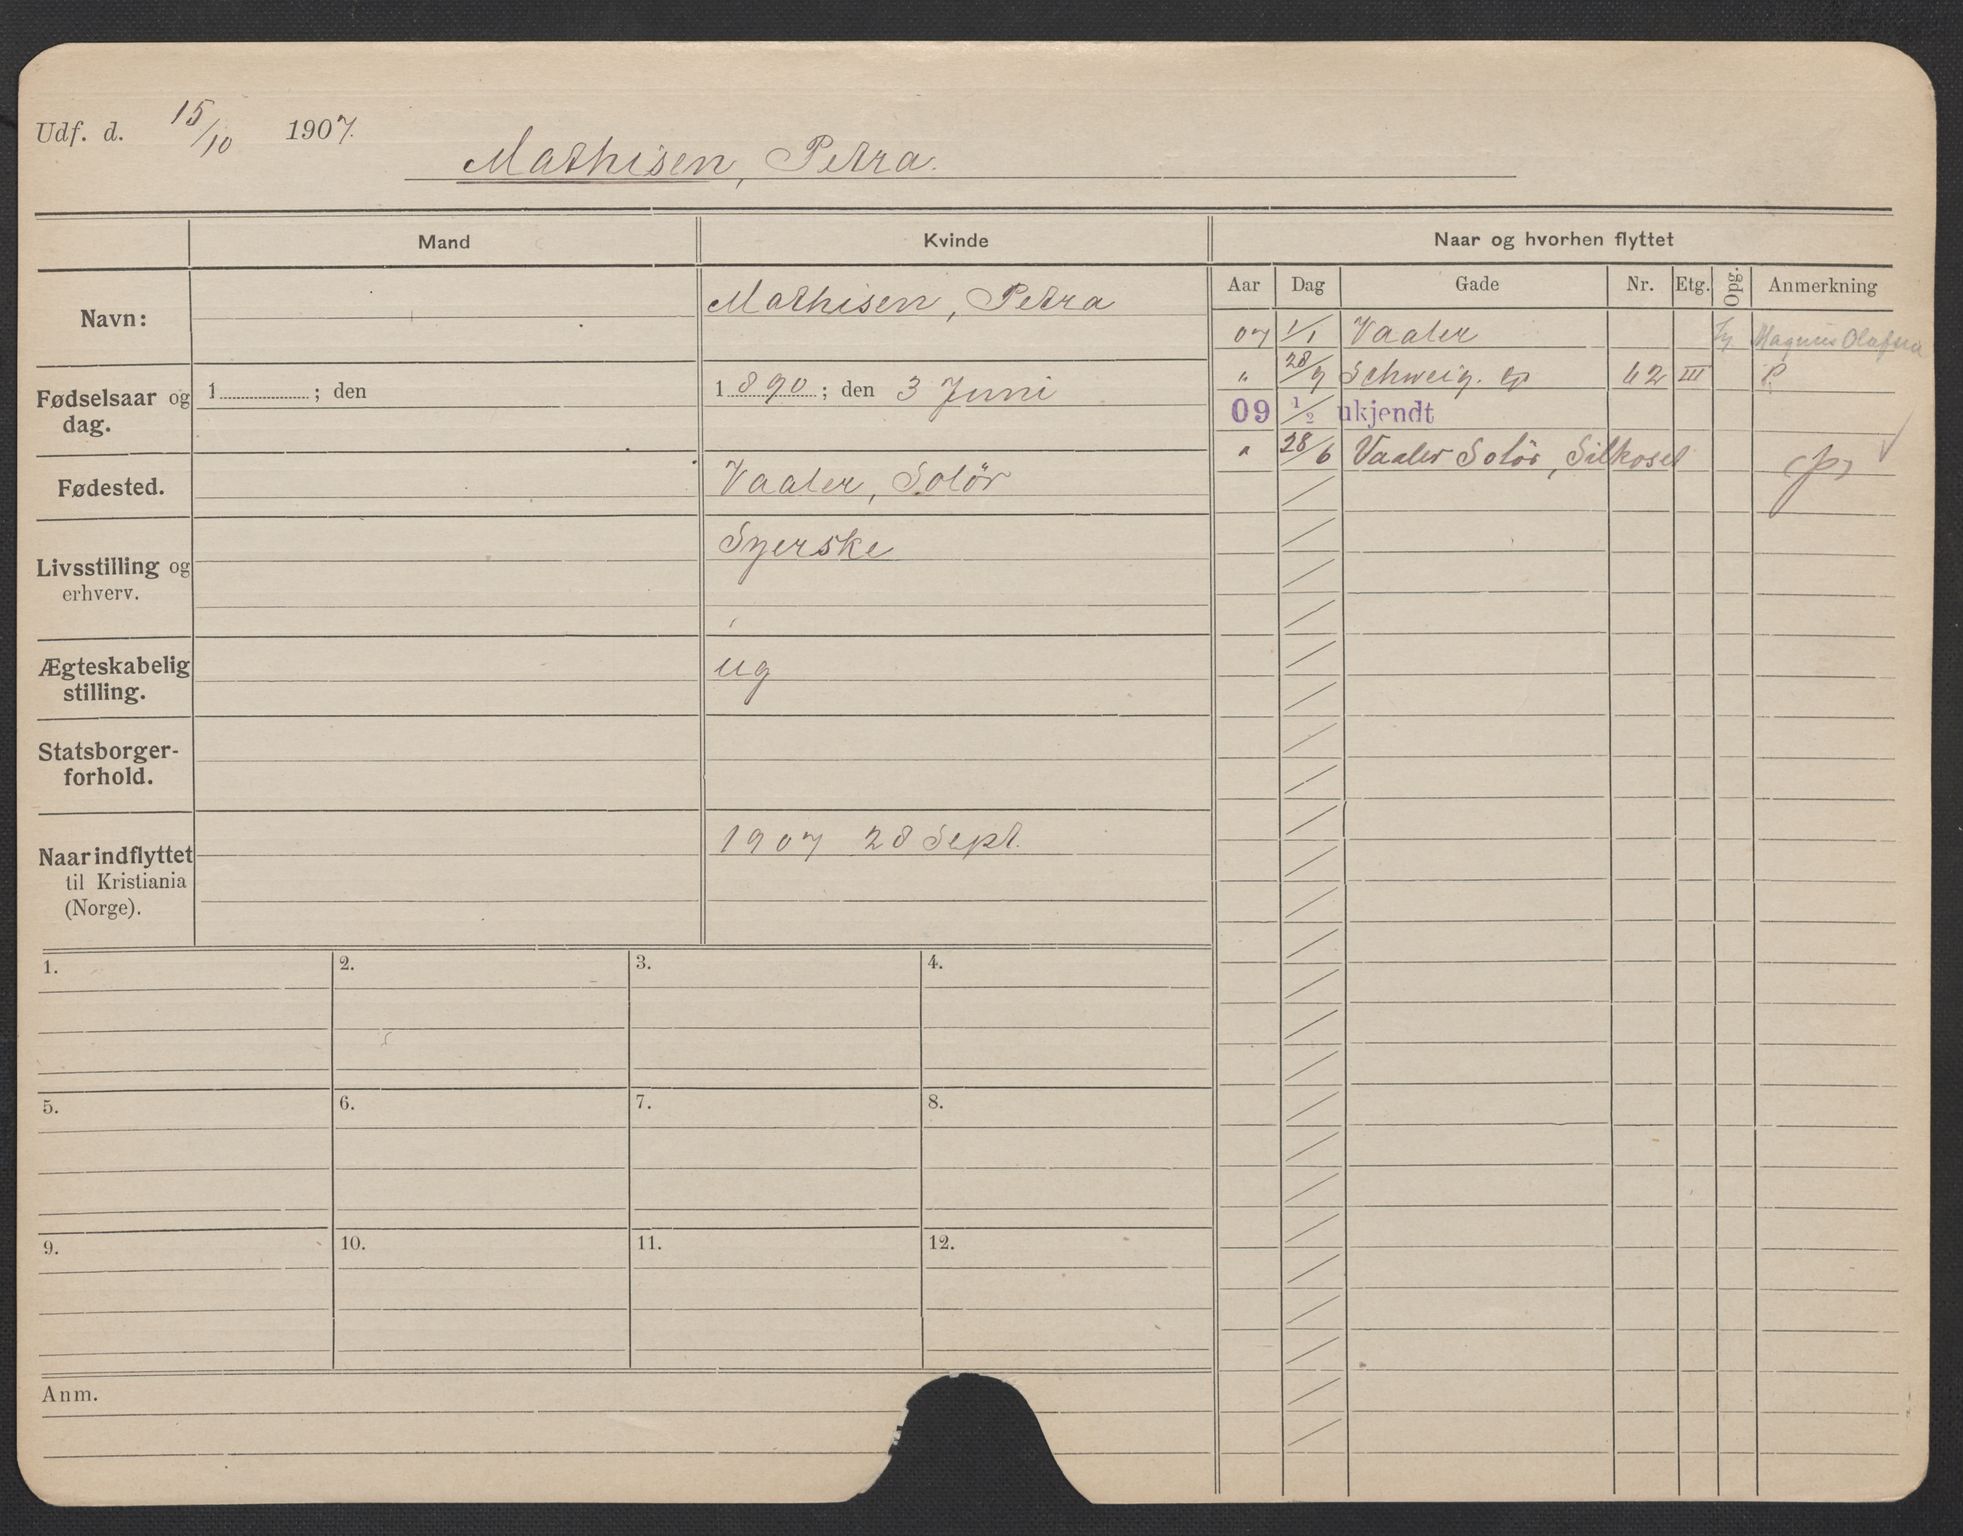 Udf. d. 15/10 1907.
Mathisen, Petra.
Mand
Kvinde
Naar og hvorhen flyttet
Navn:
Mathisen, Petra
Aar Dag Gade Nr. Etg. Opg. Anmerkning
07 1/1 Vaaler Magnus
Fødselsaar og dag.
1 ; den
1890 ; den 3 Juni
" 28/9 Schweig. 62 III P.
09 1/2 ukjendt
" 28/6 Vaaler Solör, Silkoset (p)
Fødested.
Vaaler, Solör
Livsstilling og
erhverv.
Syerske
Ægteskabelig
stilling.
ug
Statsborger-
forhold.
Naar indflyttet
til Kristiania
(Norge).
1907 28 Sept.
1. 2. 3. 4.
5. 6. 7. 8.
9. 10. 11. 12.
Anm.